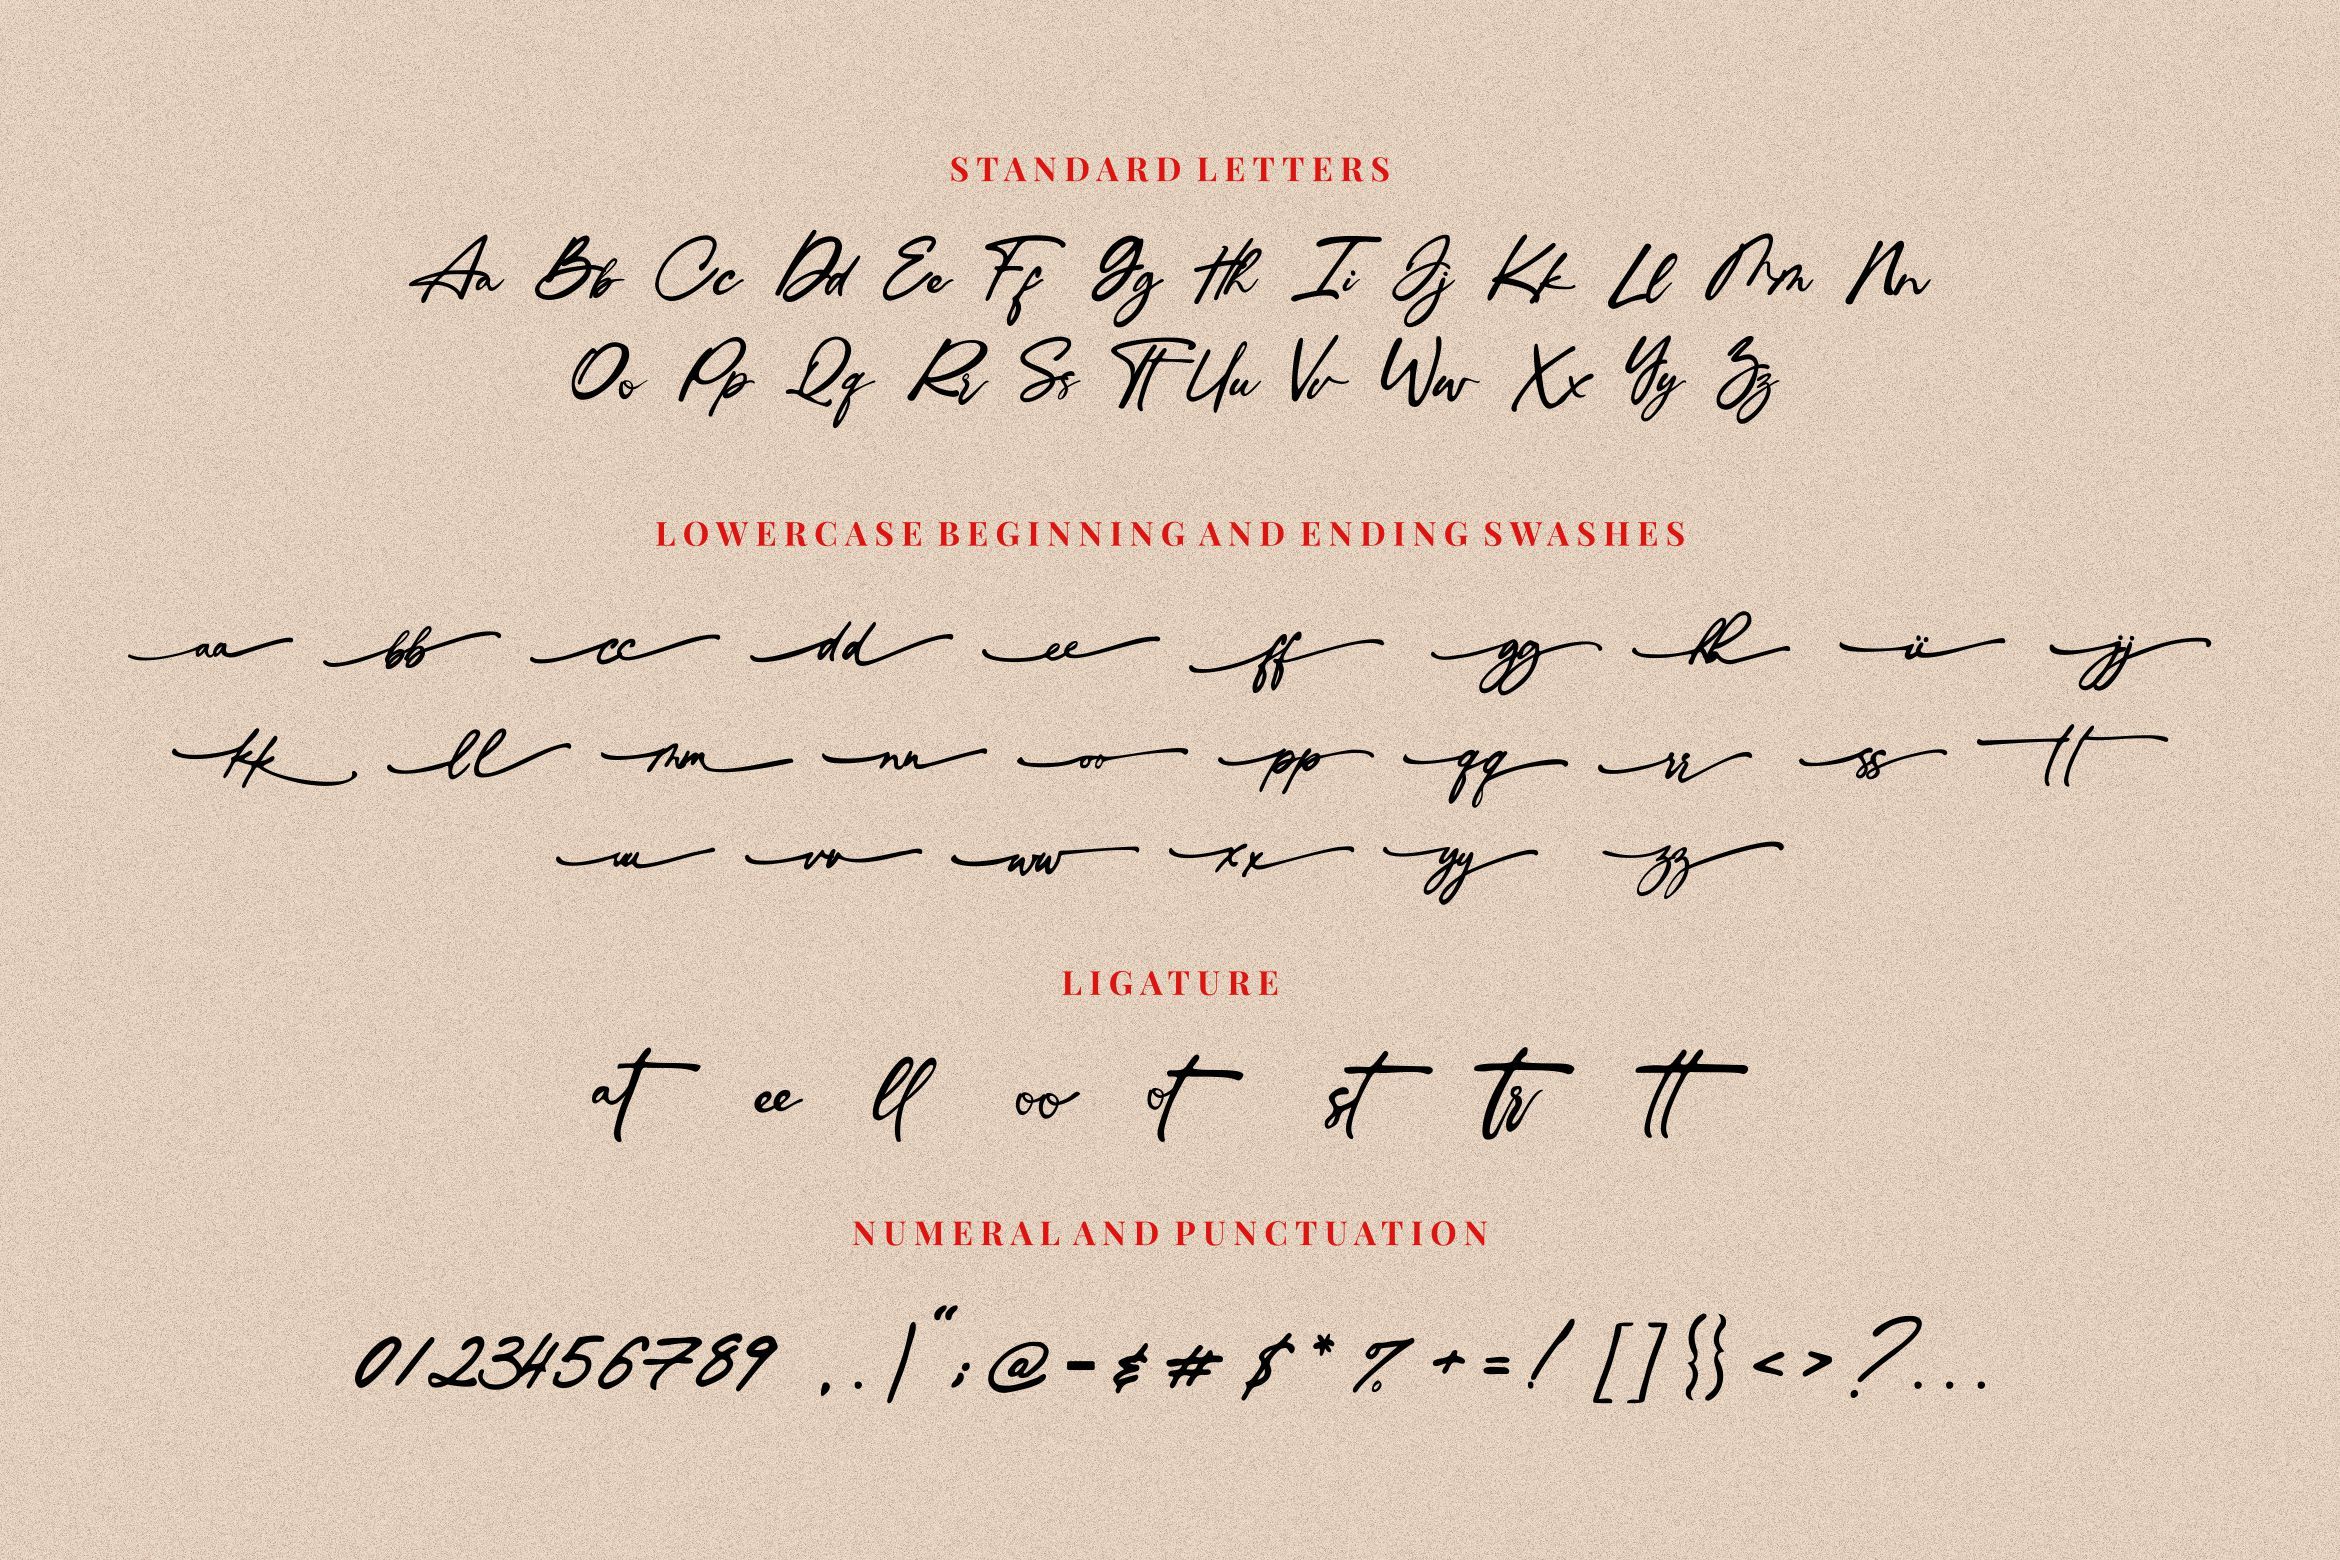 STANDARD LETTERS
Aa Bb Cc Dd Ee Ff Gg Hh Ii Jj Kk Ll Mm Nn
Oo Pp Qq Rr Ss Tt Uu Vv Ww Xx Yy Zz
LOWERCASE BEGINNING AND ENDING SWASHES
aa bb cc dd ee ff gg hh ii jj
kk ll mm nn oo pp qq rr ss tt
uu vv ww xx yy zz
LIGATURE
at ee ll oo ot st tr tt
NUMERAL AND PUNCTUATION
0123456789 , . | “ ; @ - & # $ * % + = ! [ ] { } < > ? . . .